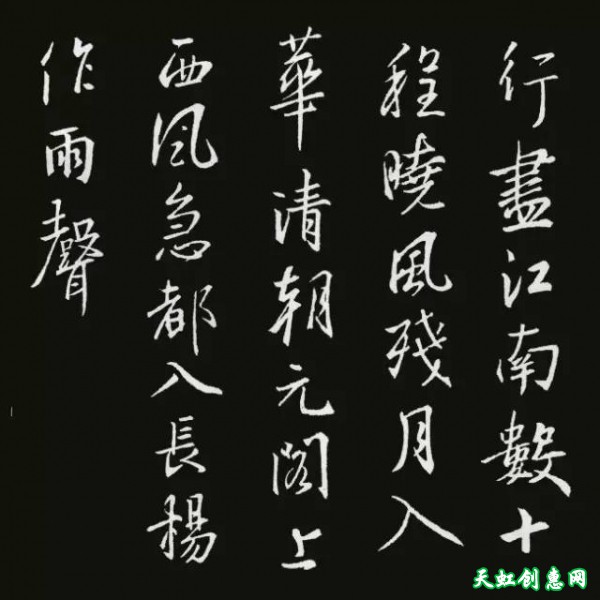 行盡江南數十
程曉風殘月入
華清朝元閣上
西風急都入長楊
作雨聲
天虹创惠网